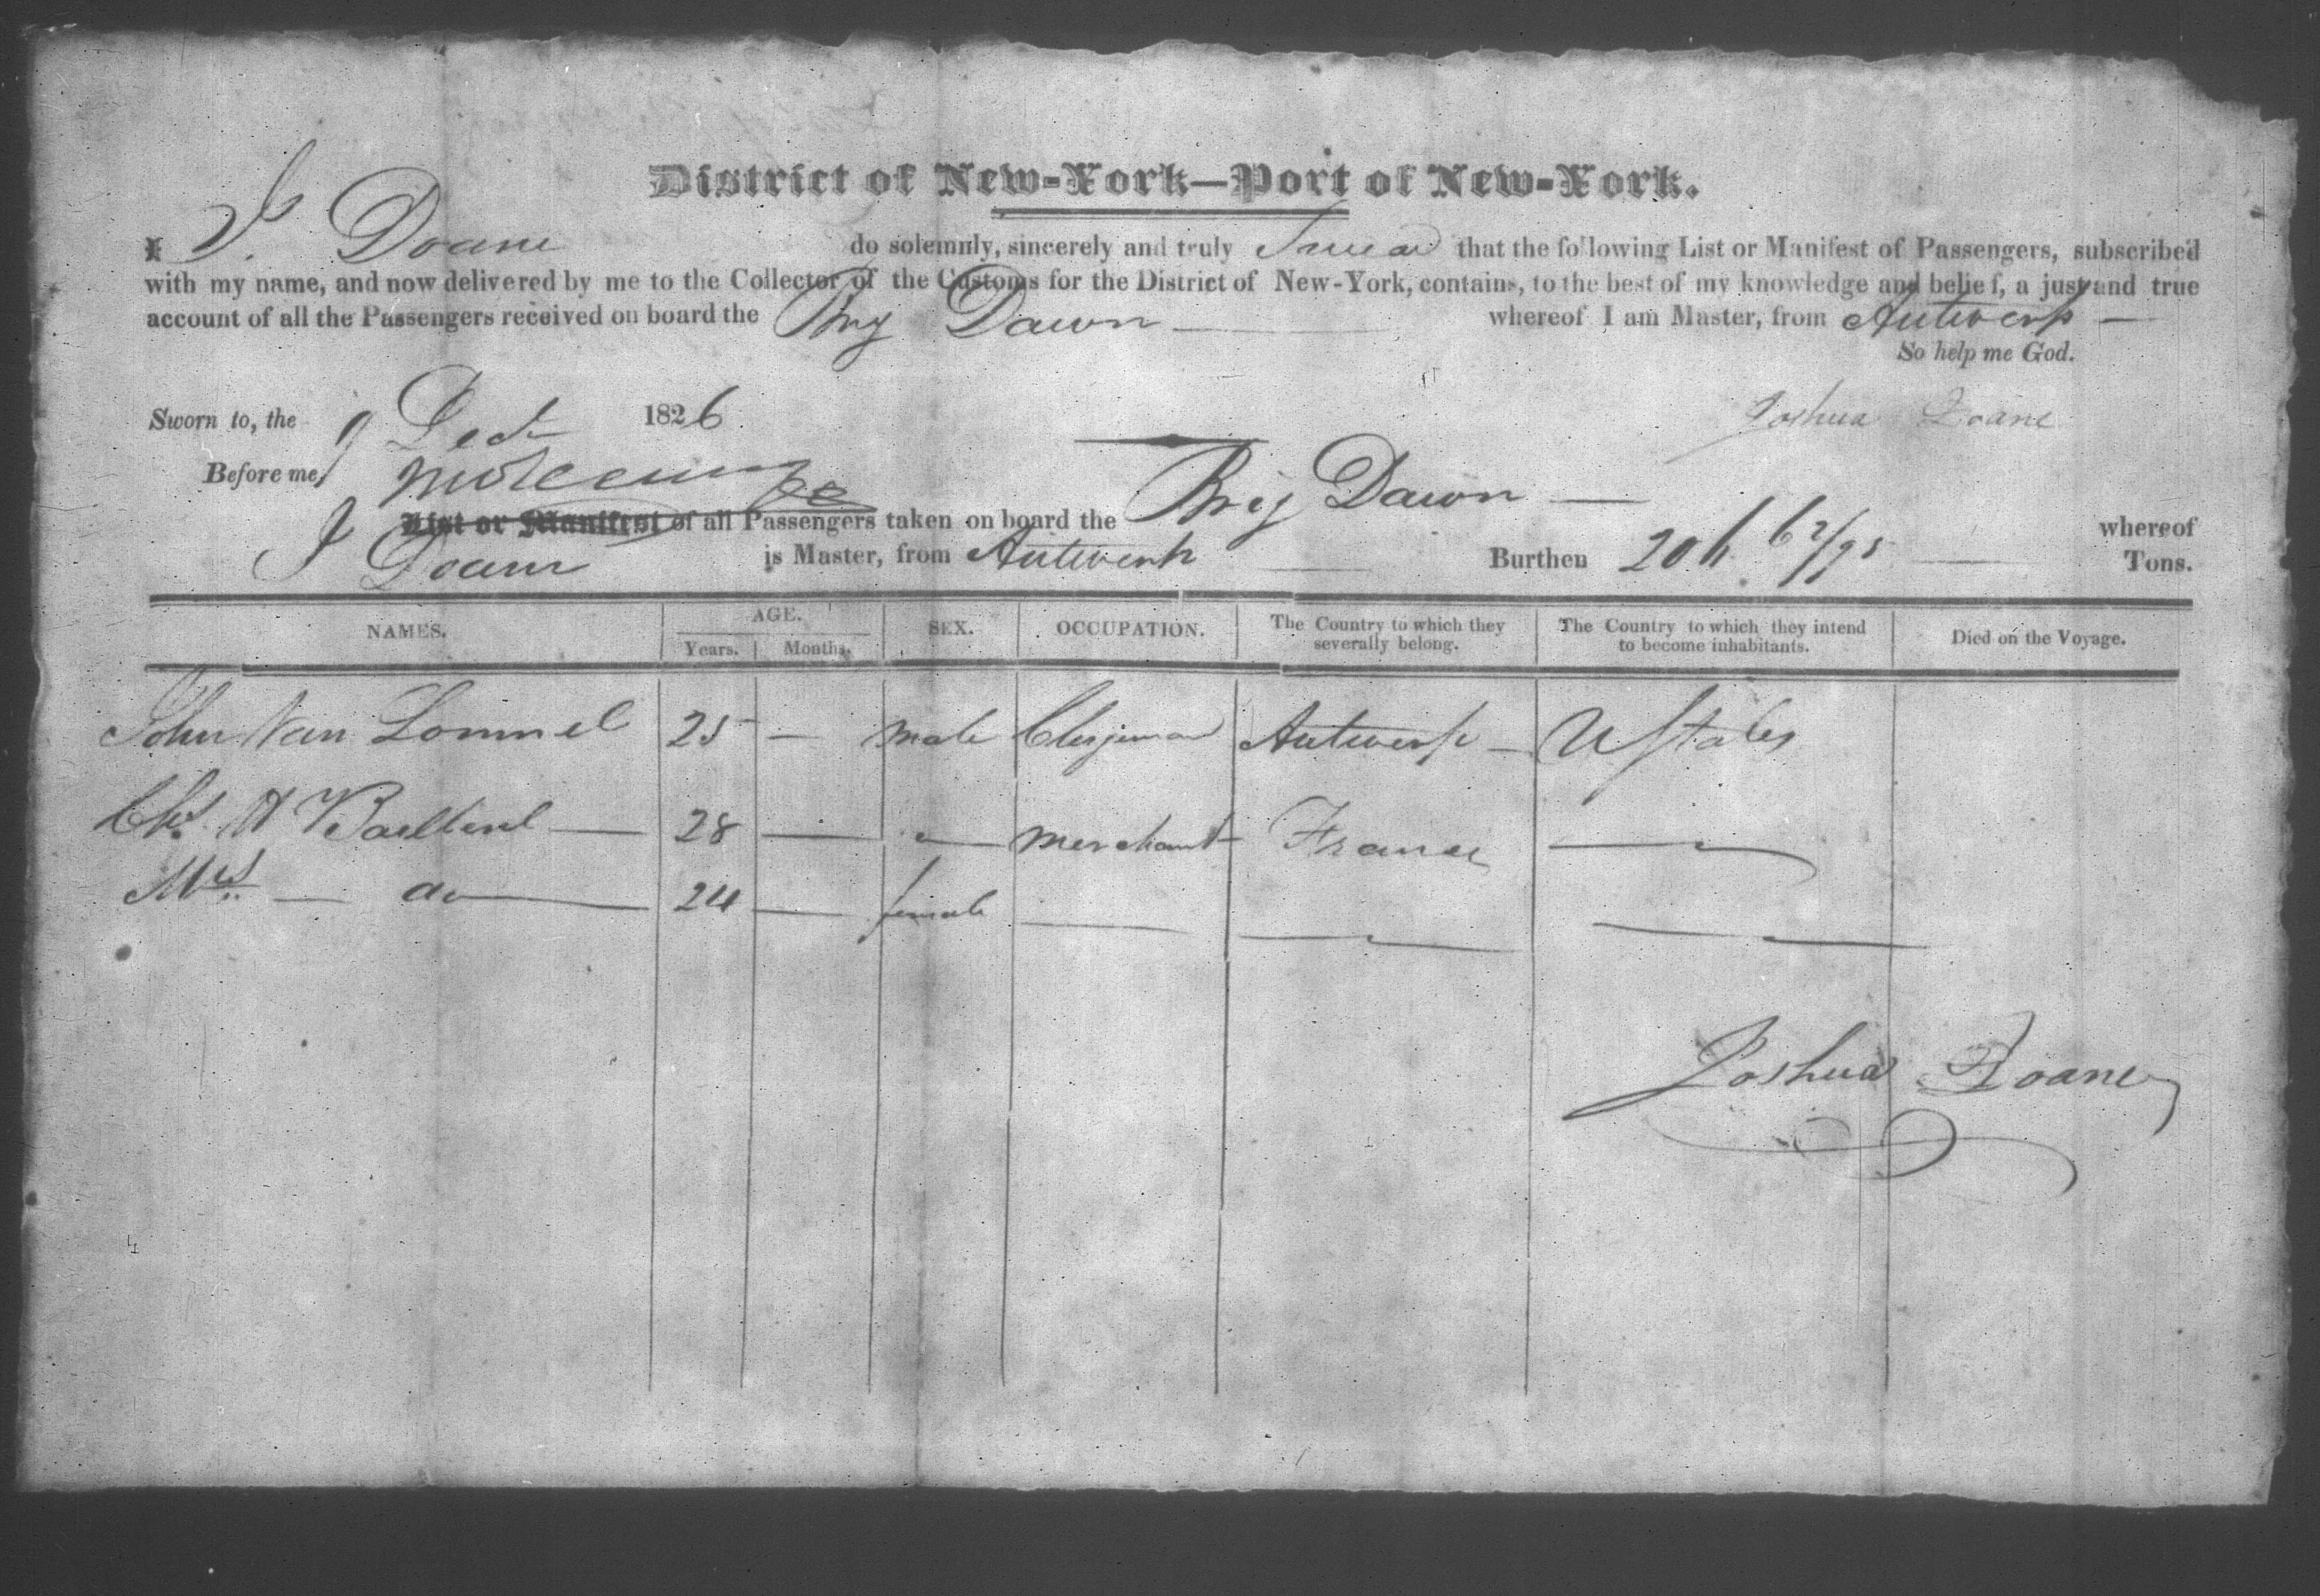 District of New-York—Port of New-York.
I J. Doane do solemnly, sincerely and truly Swear that the following List or Manifest of Passengers, subscribed
with my name, and now delivered by me to the Collector of the Customs for the District of New-York, contains, to the best of my knowledge and belief, a just and true
account of all the Passengers received on board the Brig Dawn — whereof I am Master, from Antwerp —
So help me God.
Sworn to, the 9 Decr 1826
Joshua Doane
Before me,
List or Manifest of all Passengers taken on board the Brig Dawn — whereof
J Doane is Master, from Antwerp Burthen Tons.
NAMES. AGE. SEX. OCCUPATION. The Country to which they severally belong. The Country to which they intend to become inhabitants. Died on the Voyage.
Years. Months.
John Van Lommel 25 — male Clergyman Antwerp — U States
Chs. H 28 — " merchant France —
Mrs. — do — 24 — female — — —
Joshua Doane